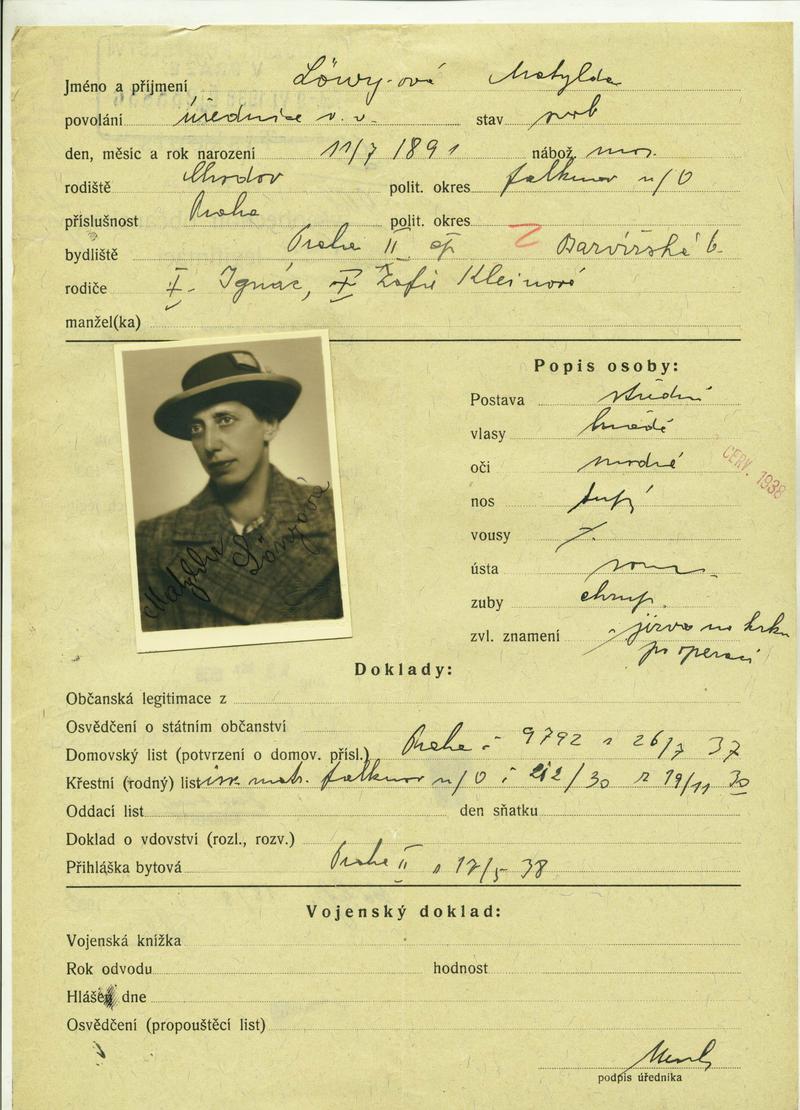 Jméno a příjmení Löwy-ová Matylda
povolání úřednice v. v. stav svob
den, měsíc a rok narození 11/7 1891 nábož. mos.
rodiště Chodov polit. okres Falknov n/O
příslušnost Praha polit. okres
bydliště Praha II čp 7 Barvířská 6
rodiče Ignác, Žofie Kleinová
manžel(ka)
Popis osoby:
Postava střední
vlasy hnědé
oči modré
nos tupý
vousy
ústa soum.
zuby chrup.
zvl. znamení jizva na krku
po operaci
ČERV. 1938
Matylda Löwyová
Doklady:
Občanská legitimace z
Osvědčení o státním občanství
Domovský list (potvrzení o domov. přísl.) Praha č 9792 z 26/7 37
Křestní (rodný) list isr. matr. Falknov n/O č 212/30 z 19/11 30
Oddací list den sňatku
Doklad o vdovství (rozl., rozv.)
Přihláška bytová Praha II z 17/5 38
Vojenský doklad:
Vojenská knížka
Rok odvodu hodnost
Hlášen dne
Osvědčení (propouštěcí list)
podpis úředníka